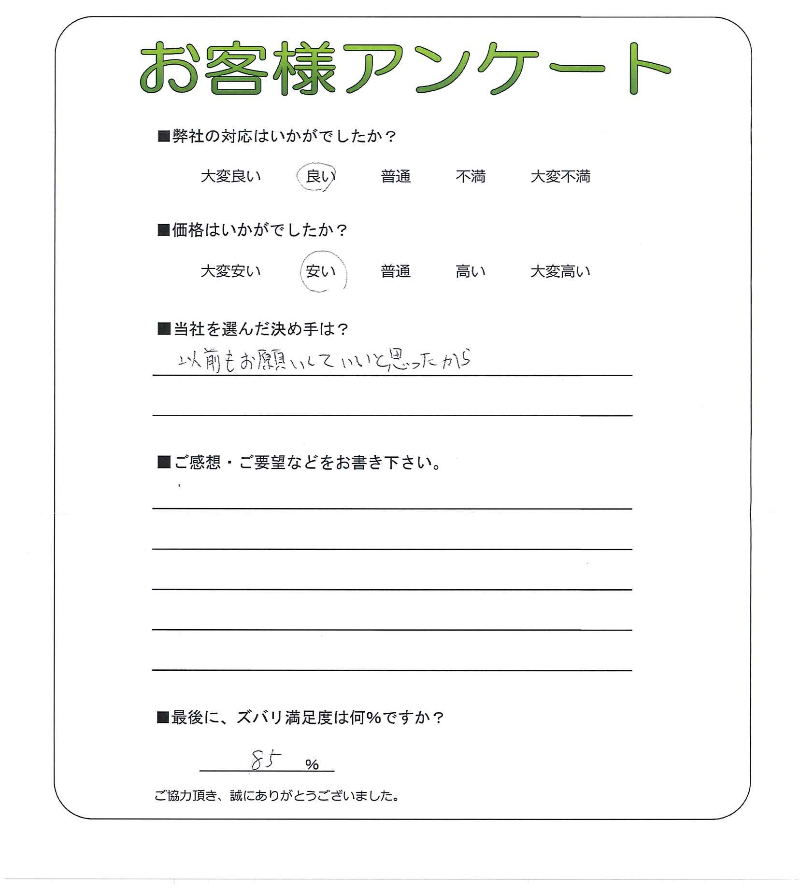 お客様アンケート
■弊社の対応はいかがでしたか？
大変良い 良い 普通 不満 大変不満
■価格はいかがでしたか？
大変安い 安い 普通 高い 大変高い
■当社を選んだ決め手は？
以前もお願いしていいと思ったから
■ご感想・ご要望などをお書き下さい。
■最後に、ズバリ満足度は何％ですか？
85 ％
ご協力頂き、誠にありがとうございました。